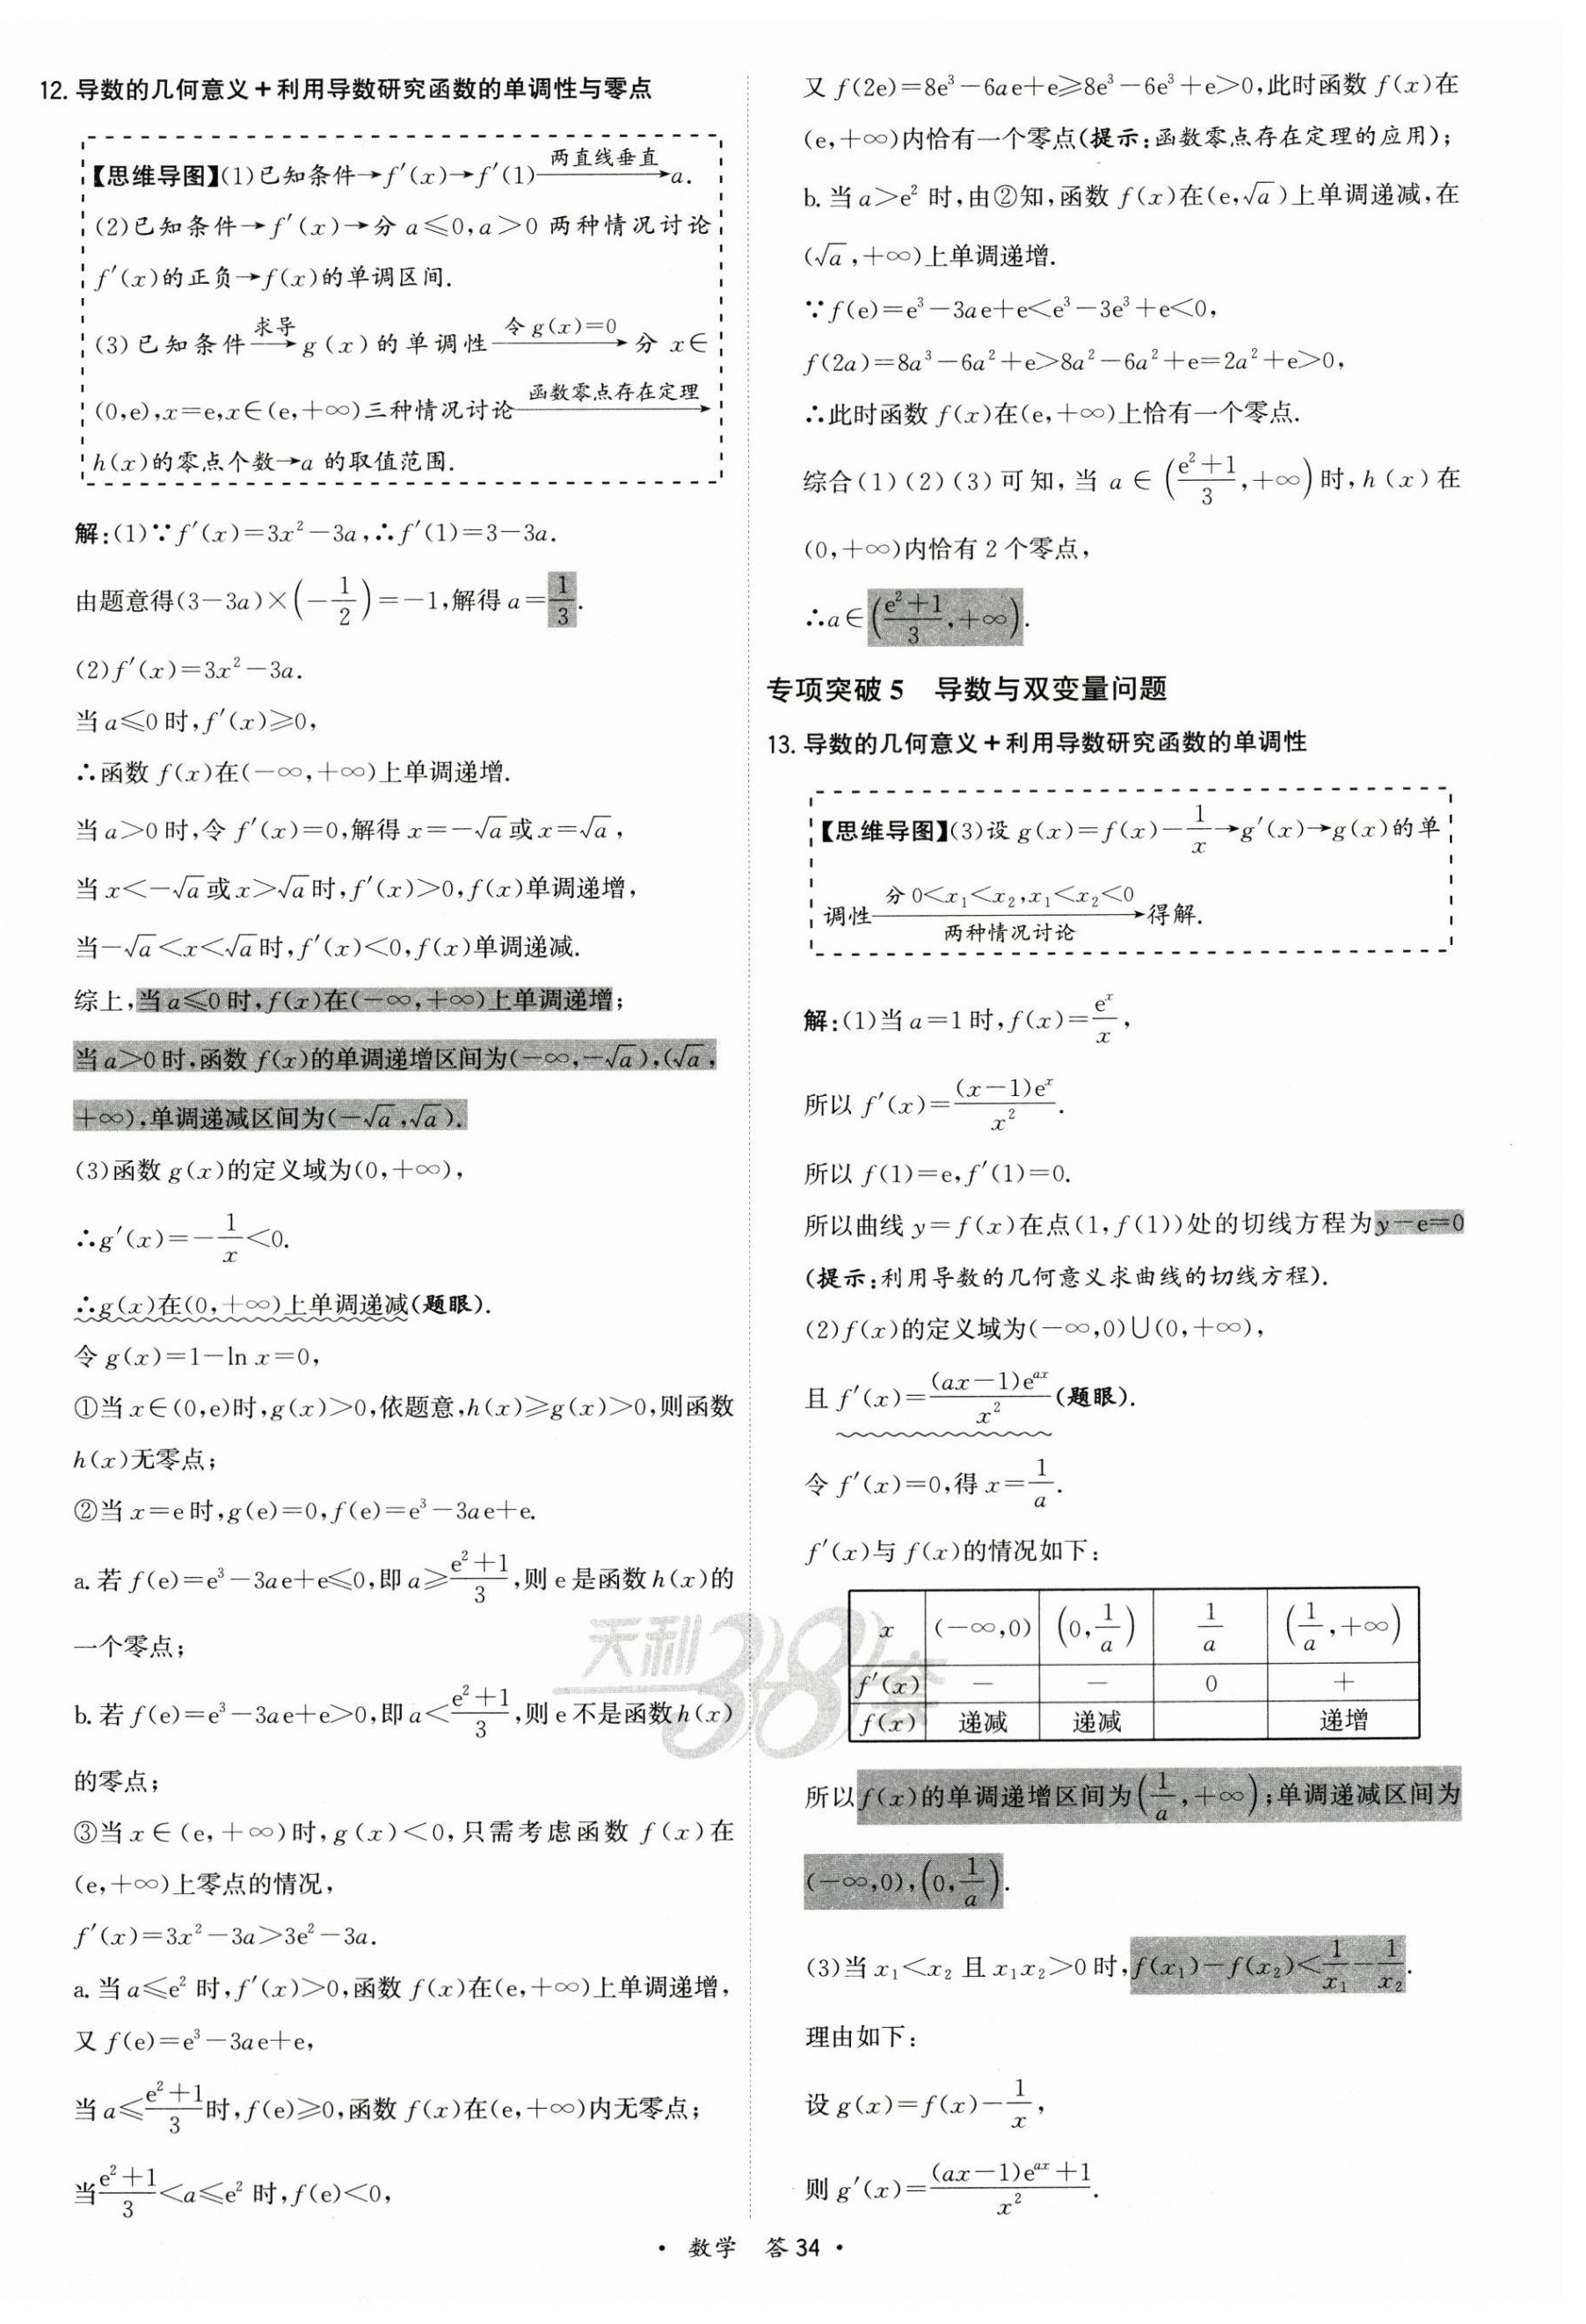 12. 导数的几何意义＋利用导数研究函数的单调性与零点
【思维导图】(1)已知条件→f′(x)→f′(1)——两直线垂直→a.
(2)已知条件→f′(x)→分 a≤0,a>0 两种情况讨论
f′(x)的正负→f(x)的单调区间.
(3)已知条件——求导→g(x)的单调性——令 g(x)=0→分 x∈
(0,e),x=e,x∈(e,+∞)三种情况讨论——函数零点存在定理→
h(x)的零点个数→a 的取值范围.
解:(1)∵f′(x)=3x²−3a,∴f′(1)=3−3a.
由题意得(3−3a)×(−1/2)=−1,解得 a=1/3.
(2)f′(x)=3x²−3a.
当 a≤0 时,f′(x)≥0,
∴函数 f(x)在(−∞,+∞)上单调递增.
当 a>0 时,令 f′(x)=0,解得 x=−√a 或 x=√a,
当 x<−√a 或 x>√a 时,f′(x)>0,f(x)单调递增,
当−√a<x<√a 时,f′(x)<0,f(x)单调递减.
综上,当 a≤0 时,f(x)在(−∞,+∞)上单调递增;
当 a>0 时,函数 f(x)的单调递增区间为(−∞,−√a),(√a,
+∞),单调递减区间为(−√a,√a).
(3)函数 g(x)的定义域为(0,+∞),
∴g′(x)=−1/x<0.
∴g(x)在(0,+∞)上单调递减(题眼).
令 g(x)=1−ln x=0,
①当 x∈(0,e)时,g(x)>0,依题意,h(x)≥g(x)>0,则函数
h(x)无零点;
②当 x=e 时,g(e)=0,f(e)=e³−3ae+e.
a. 若 f(e)=e³−3ae+e≤0,即 a≥(e²+1)/3,则 e 是函数 h(x)的
一个零点;
b. 若 f(e)=e³−3ae+e>0,即 a<(e²+1)/3,则 e 不是函数 h(x)
的零点;
③当 x∈(e,+∞)时,g(x)<0,只需考虑函数 f(x)在
(e,+∞)上零点的情况,
f′(x)=3x²−3a>3e²−3a.
a. 当 a≤e² 时,f′(x)>0,函数 f(x)在(e,+∞)上单调递增,
又 f(e)=e³−3ae+e,
当 a≤(e²+1)/3 时,f(e)≥0,函数 f(x)在(e,+∞)内无零点;
当(e²+1)/3<a≤e² 时,f(e)<0,
又 f(2e)=8e³−6ae+e≥8e³−6e³+e>0,此时函数 f(x)在
(e,+∞)内恰有一个零点(提示:函数零点存在定理的应用);
b. 当 a>e² 时,由②知,函数 f(x)在(e,√a)上单调递减,在
(√a,+∞)上单调递增.
∵f(e)=e³−3ae+e<e³−3e³+e<0,
f(2a)=8a³−6a²+e>8a²−6a²+e=2a²+e>0,
∴此时函数 f(x)在(e,+∞)上恰有一个零点.
综合(1)(2)(3)可知,当 a∈((e²+1)/3,+∞)时,h(x)在
(0,+∞)内恰有 2 个零点,
∴a∈((e²+1)/3,+∞).
专项突破 5　导数与双变量问题
13. 导数的几何意义＋利用导数研究函数的单调性
【思维导图】(3)设 g(x)=f(x)−1/x→g′(x)→g(x)的单
调性——分 0<x₁<x₂,x₁<x₂<0 两种情况讨论→得解.
解:(1)当 a=1 时,f(x)=eˣ/x,
所以 f′(x)=(x−1)eˣ/x².
所以 f(1)=e,f′(1)=0.
所以曲线 y=f(x)在点(1,f(1))处的切线方程为 y−e=0
(提示:利用导数的几何意义求曲线的切线方程).
(2)f(x)的定义域为(−∞,0)∪(0,+∞),
且 f′(x)=(ax−1)eᵃˣ/x²(题眼).
令 f′(x)=0,得 x=1/a.
f′(x)与 f(x)的情况如下:
x (−∞,0) (0,1/a) 1/a (1/a,+∞)
f′(x) − − 0 +
f(x) 递减 递减 递增
所以 f(x)的单调递增区间为(1/a,+∞);单调递减区间为
(−∞,0),(0,1/a).
(3)当 x₁<x₂ 且 x₁x₂>0 时,f(x₁)−f(x₂)<1/x₁−1/x₂.
理由如下:
设 g(x)=f(x)−1/x,
则 g′(x)=((ax−1)eᵃˣ+1)/x².
天利38套
• 数学　答 34 •